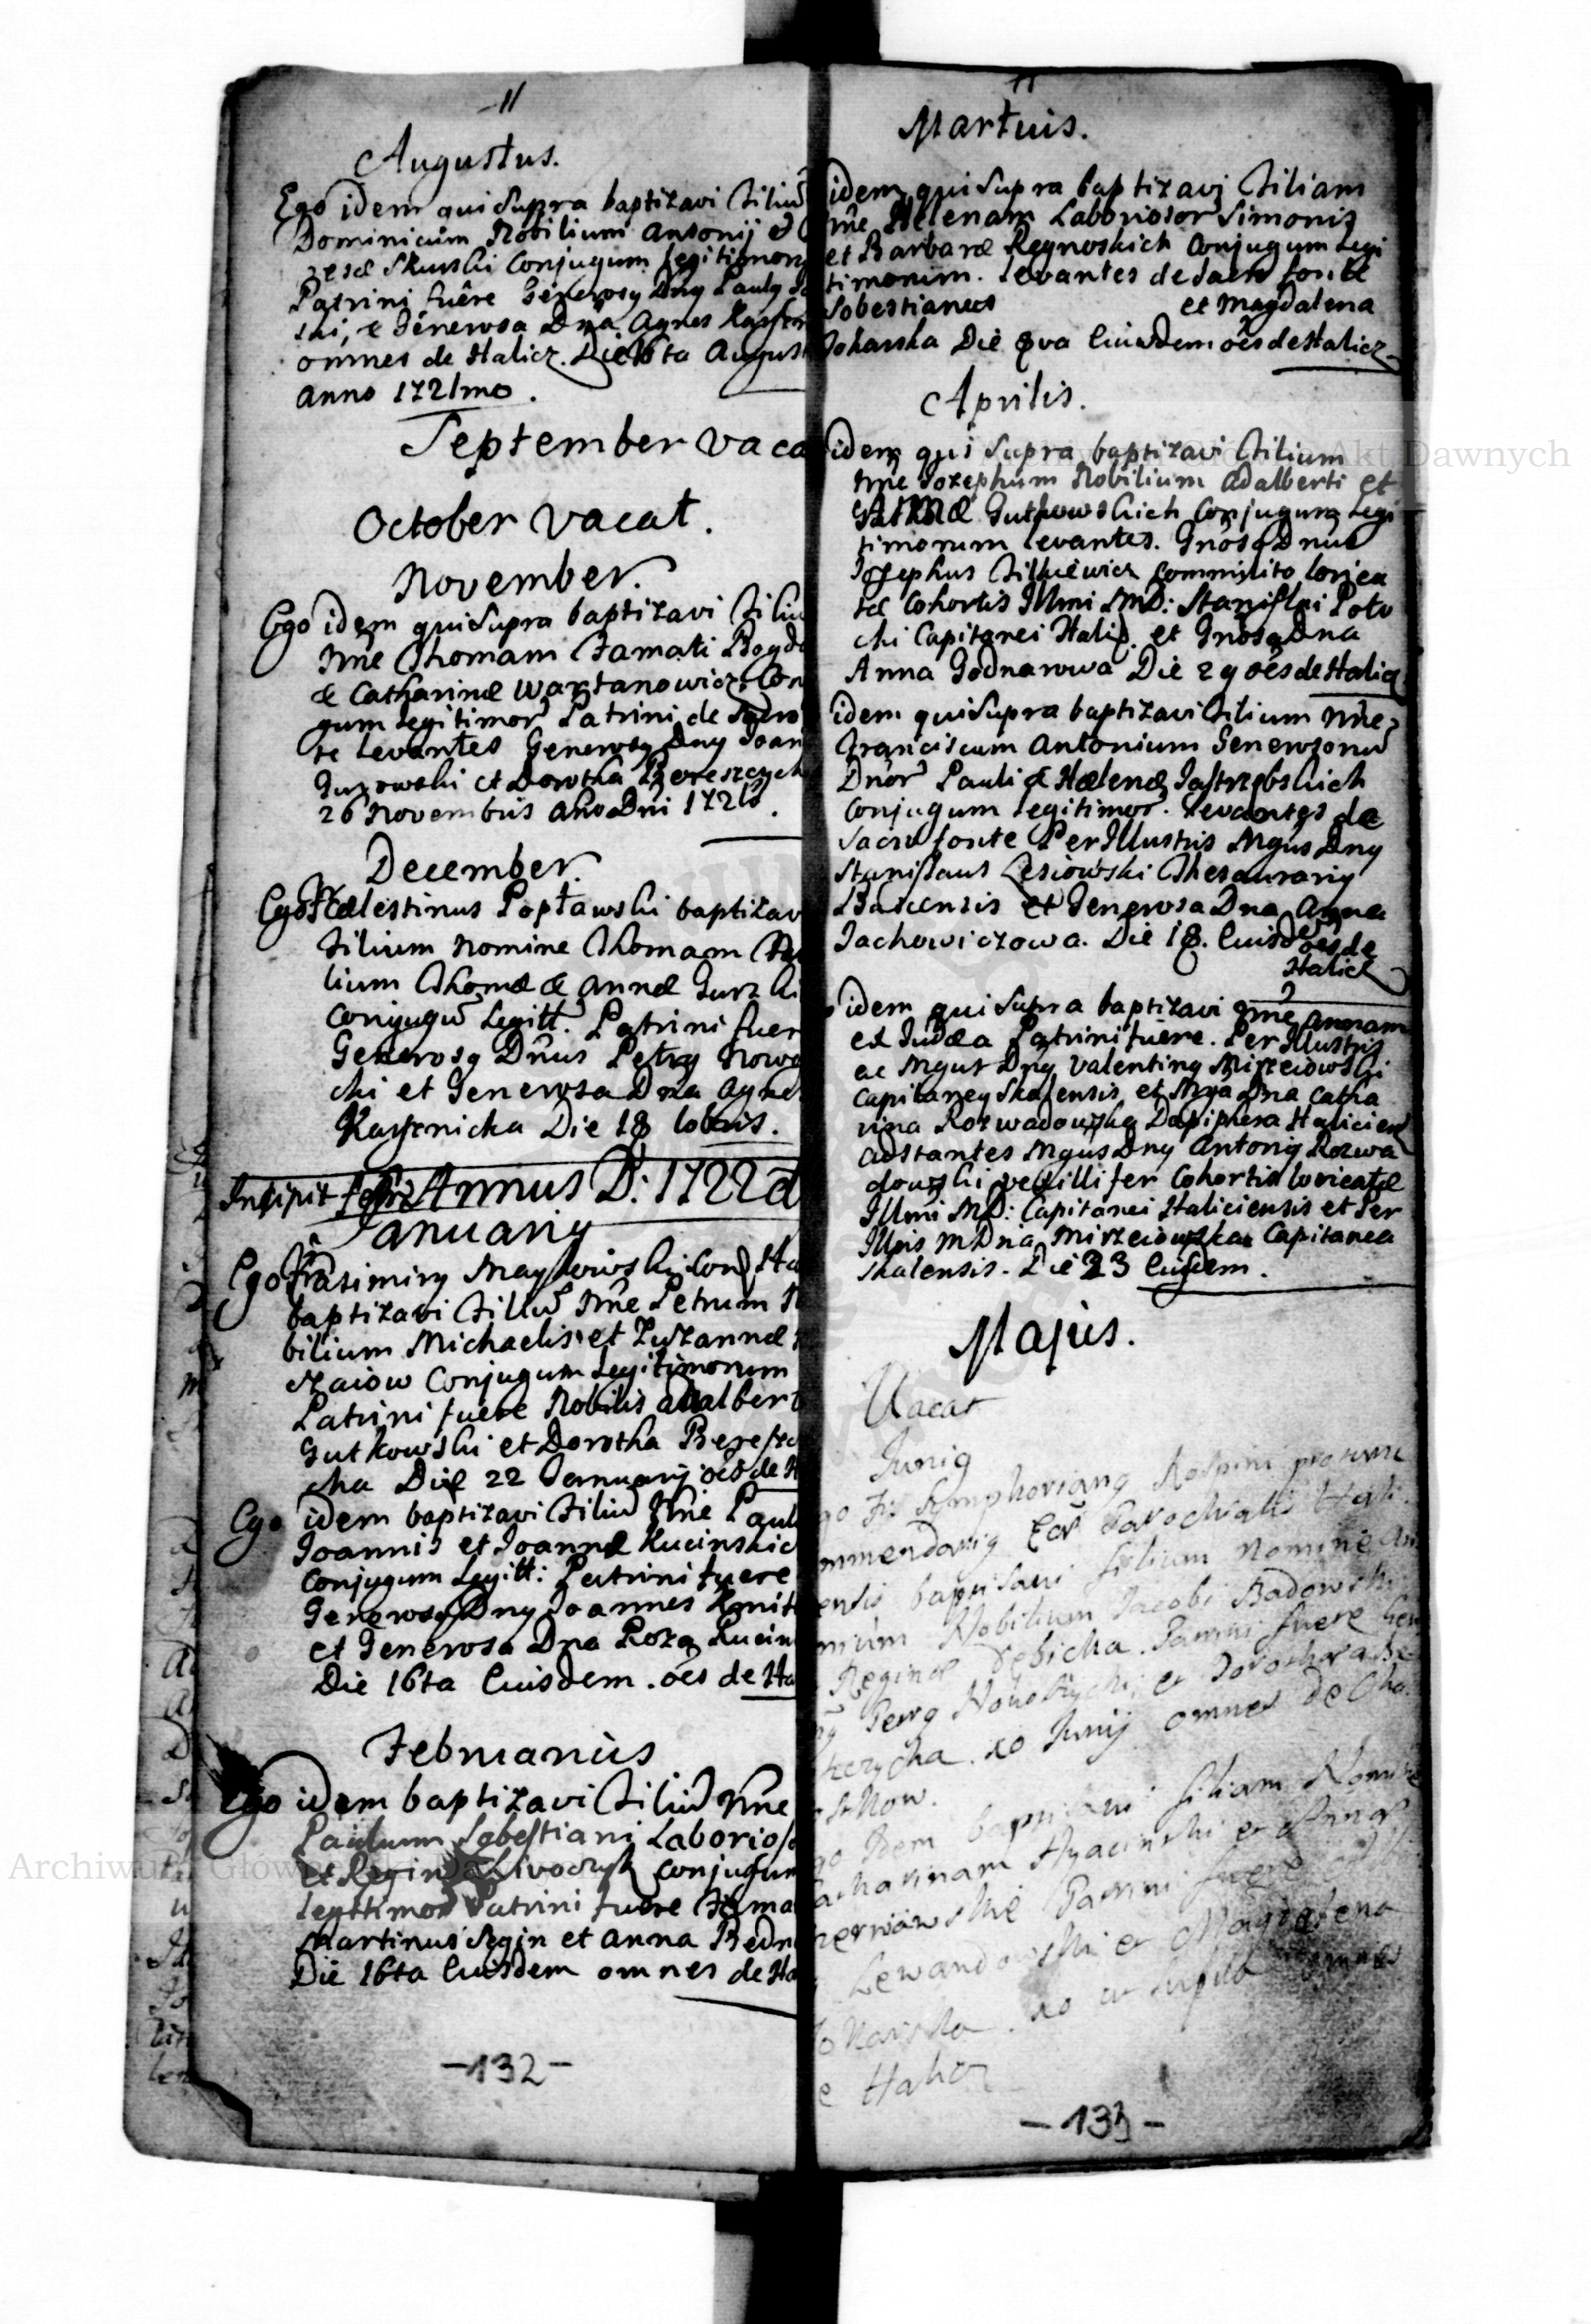 11
Augustus.
Ego idem qui Supra baptizavi filiũ
Dominicum Nobilium Antonij &
Skurski Conjugum Legitimor
Patrini fuêre Generosg Dng Paulg
ski, & Generosa Dna Agnes
omnes de Halicz. Die 16ta August
Anno 1721mo.
September vaca
October vacat.
November.
Ego idem qui Supra baptizavi filiu
Nñe Thomam Famati Bogd
& Catharinæ Wartanowicz Con
gum Legitimor Patrini de Sacro
te Levantes Generosg Dng Joan
Guzowski et Dorotha Bereszczych
26 Novembris Año Dni 1721.
December.
Ego Fr Cælestinus Popławski baptizav
filium Nomine Thomam
lium Thomæ & Annæ Gurz
Conjugũ Legitt. Patrini fuer
Generosg Dñus Petrg Nowo
cki et Generosa Dna Agne
Die 18 Xobris.
Incipit Annus D: 1722d
Januarig
Ego Fr Casimirg
baptizavi filiũ Nñe Petrum N
bilium Michaelis et Zuzannæ
Conjugum Legitimorum
Patrini fuere Nobilis Adalbert
Gutkowski et Dorotha Bereszc
cha Die 22 Januarij oẽs de H
Ego idem baptizavi filiũ Nñe Paul
Joannis et Joannæ Kucinskic
Conjugum Legitt: Patrini fuere
Generosg Dng Joannes
et Generosa Dna Roza Kucin
Die 16ta Eiusdem. oẽs de Ha
Februarius
Ego idem baptizavi filiũ Nñe
Paulum Sobestiani Laborios
et Reginæ Conjugum
legitimor Patrini fuere
Martinus et Anna Bedn
Die 16ta Eiusdem omnes de Ha
-132-
11
Martius.
idem qui Supra baptizavi filiam
ñe Helenam Laboriosor Simonis
et Barbaræ Reynoskich Conjugum Legi
timorum. Levantes de Sacro fonte
Sobestianus et Magdalena
Tokarska Die 8va Eiusdem oẽs de Halicz
Aprilis.
idem qui Supra baptizavi filium
Nñe Jozephum Nobilium Adalberti et
Gutkowskich Conjugum Legi
timorum Levantes. Gnosg Dnus
Josephus Commilito lorica
tæ Cohortis Illmi MD: Stanislai Poto
cki Capitanei Halic. et Gnosa Dna
Anna Die 29 oẽs de Halicz
idem qui Supra baptizavi filium Nñe
Franciscum Antonium Generosorũ
Dnor Pauli & Helenæ Jastrzębskich
Conjugum Legitimor. Levantes de
Sacro fonte Per Illustris Mgus Dng
Stanislaus Lesiowski Thesaurarig
et Generosa Dna Agnes
Jachowiczowa. Die 18. Eiusdem oẽs de
Halicz
idem qui Supra baptizavi Nñe Annam
ex Judæa Patrini fuere. Per Illustris
ac Mgus Dng Valenting Mirzeiowski
Capitaneg Skalensis et Mga Dna Catha
rina Rozwadowska Dapifera Halicien
adstantes Mgus Dng Antonig Rozwa
dowski vexillifer Cohortis loricatæ
Illmi MD: Capitanei Haliciensis et Per
Illris MDna Mirzeiowska Capitanea
Skalensis. Die 23 Eiusdem.
Majus.
Vacat
Junig
Fr Symphoriang
mmendarig Parochialis Hali
ensis baptisavi filium Nomine An
nium Nobilium Jacobi Badowski
Reginæ Dębicka. Patrini fuere Gen
Petrg et Dorothea Be
rzycha. 20 Junij omnes de
Idem baptisavi filiam Nomine
Catharinam Hyacinthi et Annæ
Patrini fuere
Lewandowski et Magdalena
Tokarska. omnes
e Halicz
-133-
Archiwum Główne Akt Dawnych